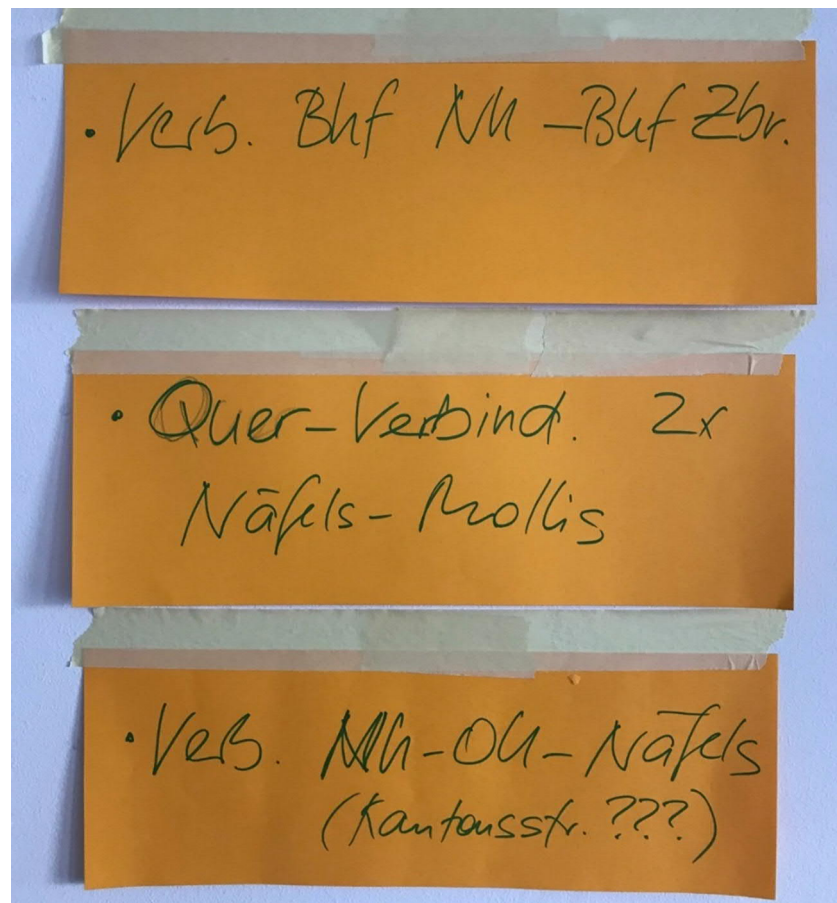 · Verb. Bhf NU - Bhf Zbr.
· Quer-Verbind. 2x
Näfels - Mollis
· Verb. NU - OU - Näfels
(Kantonsstr. ???)